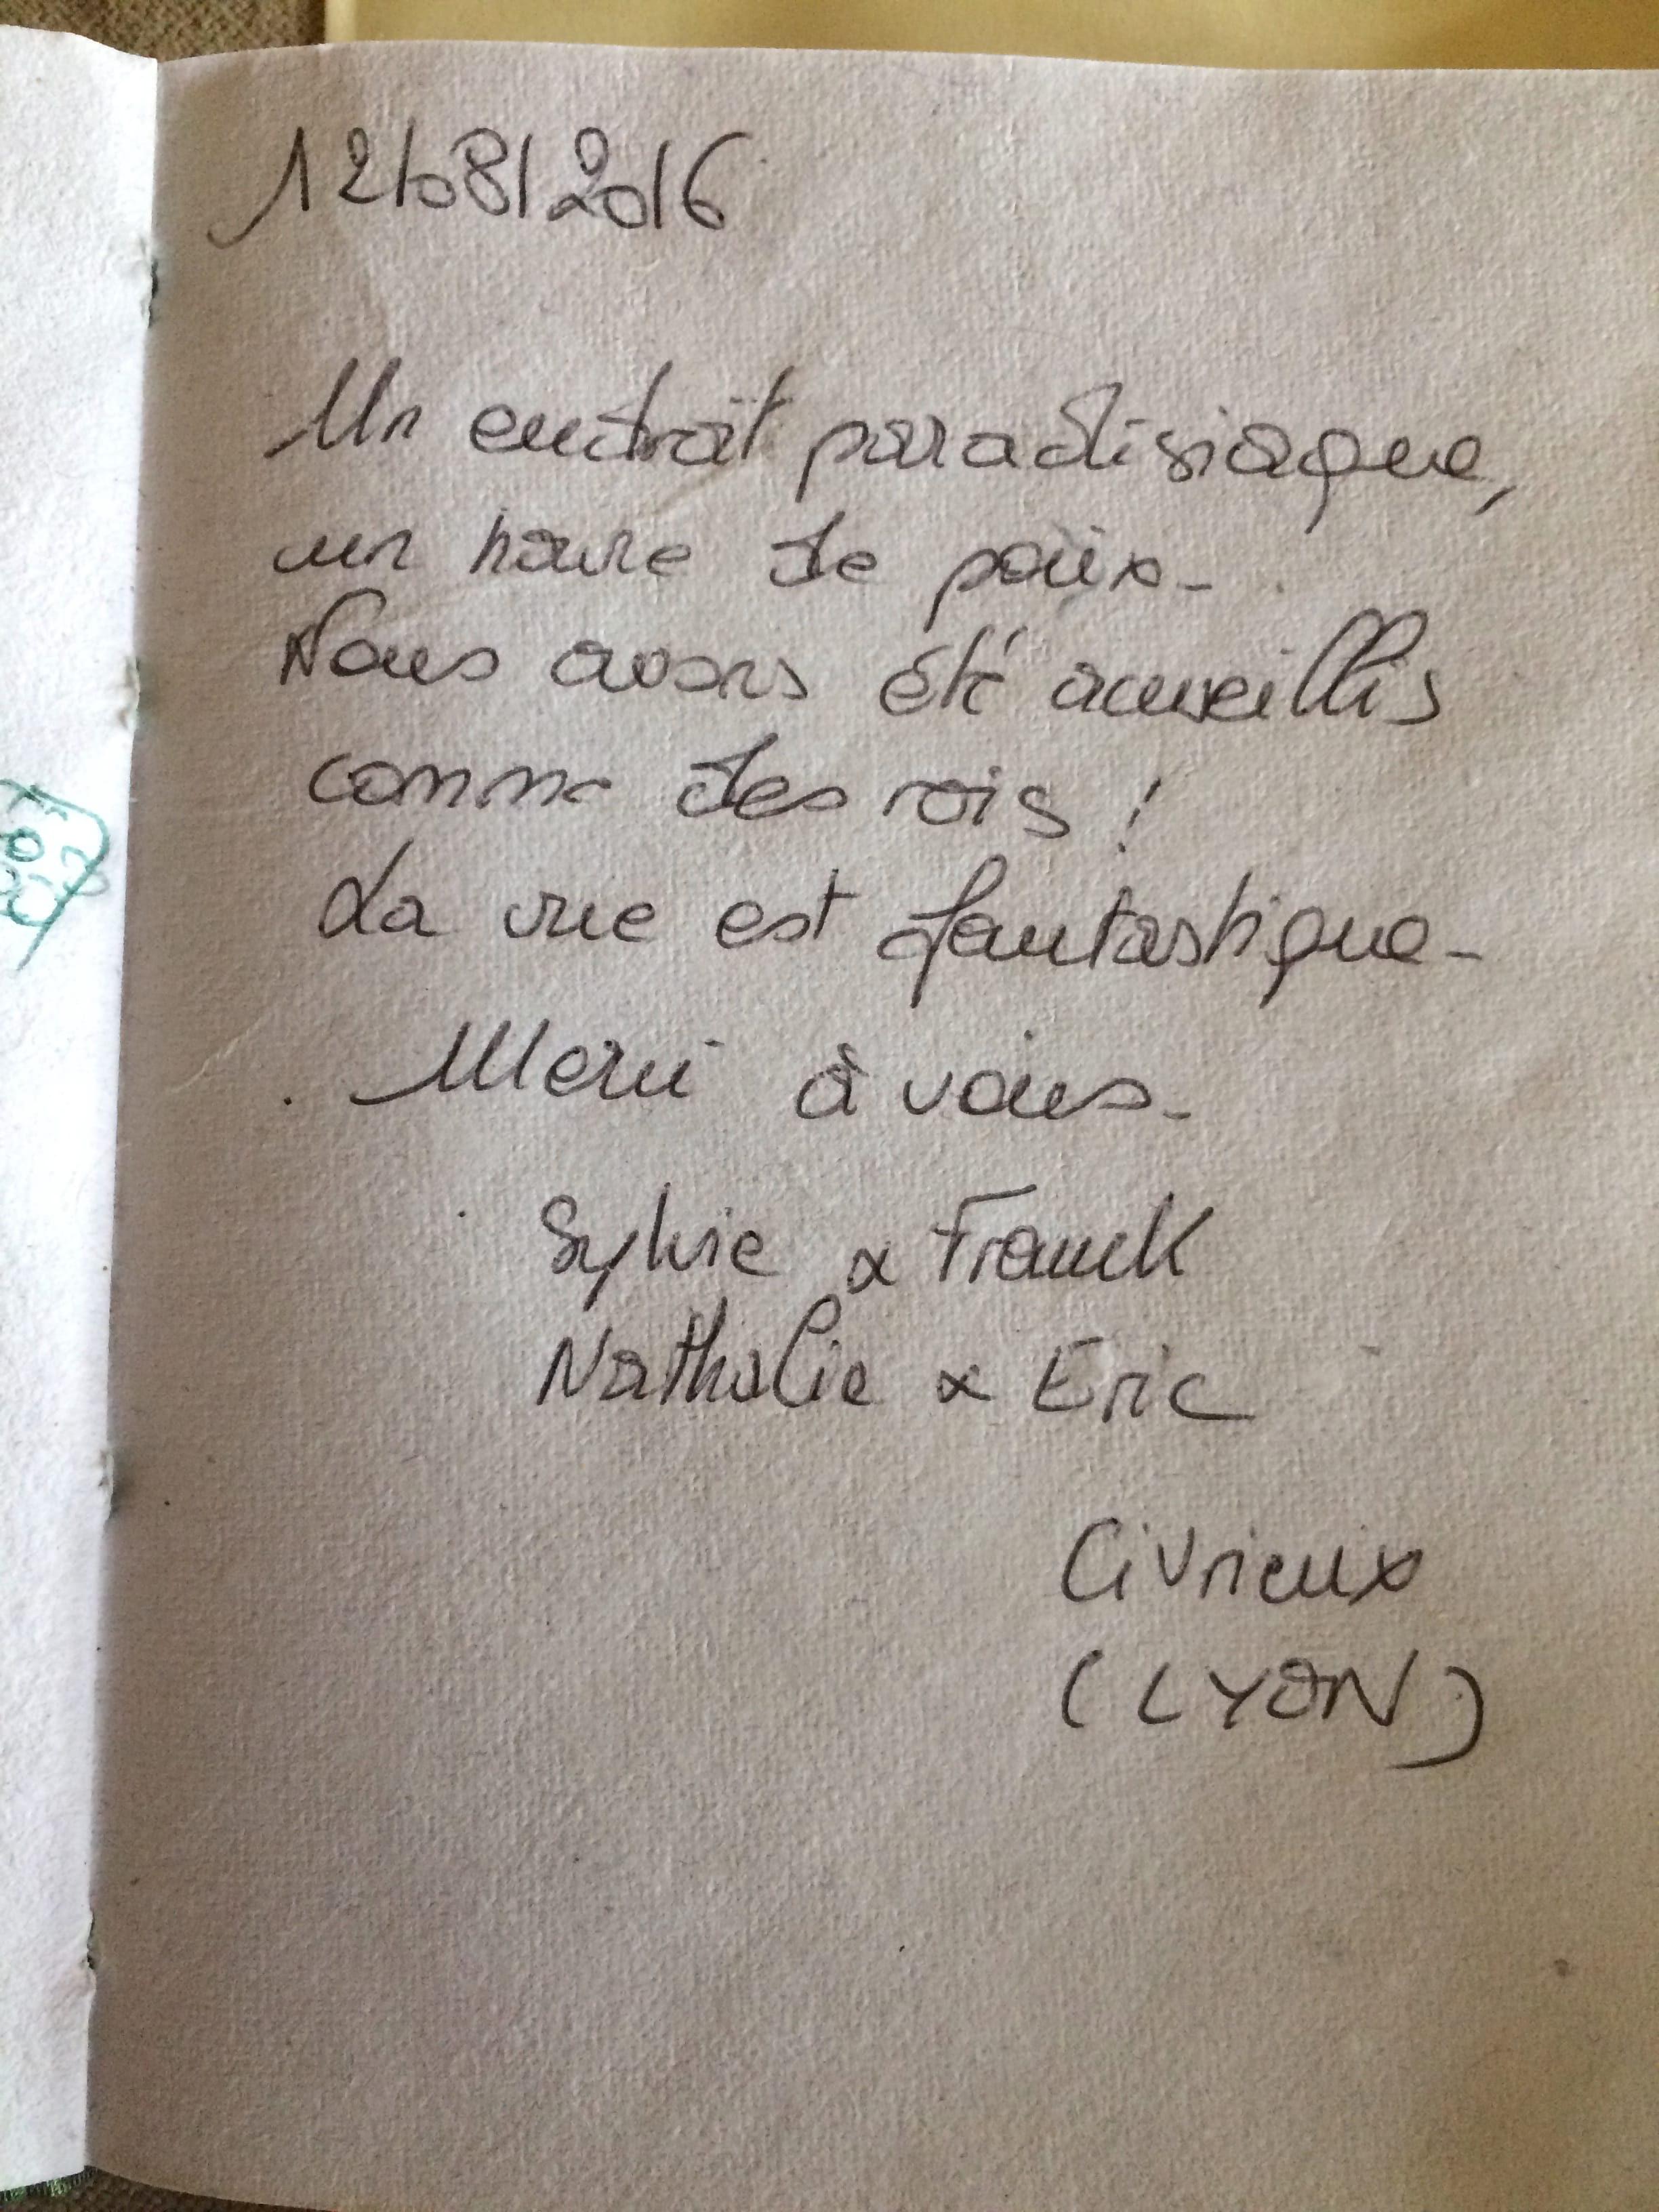 12/08/2016
Un endroit paradisiaque,
un havre de paix.
Nous avons été accueillis
comme des rois !
La vue est fantastique.
Merci à vous.
Sylvie & Franck
Nathalie & Eric
Civrieux
(LYON)